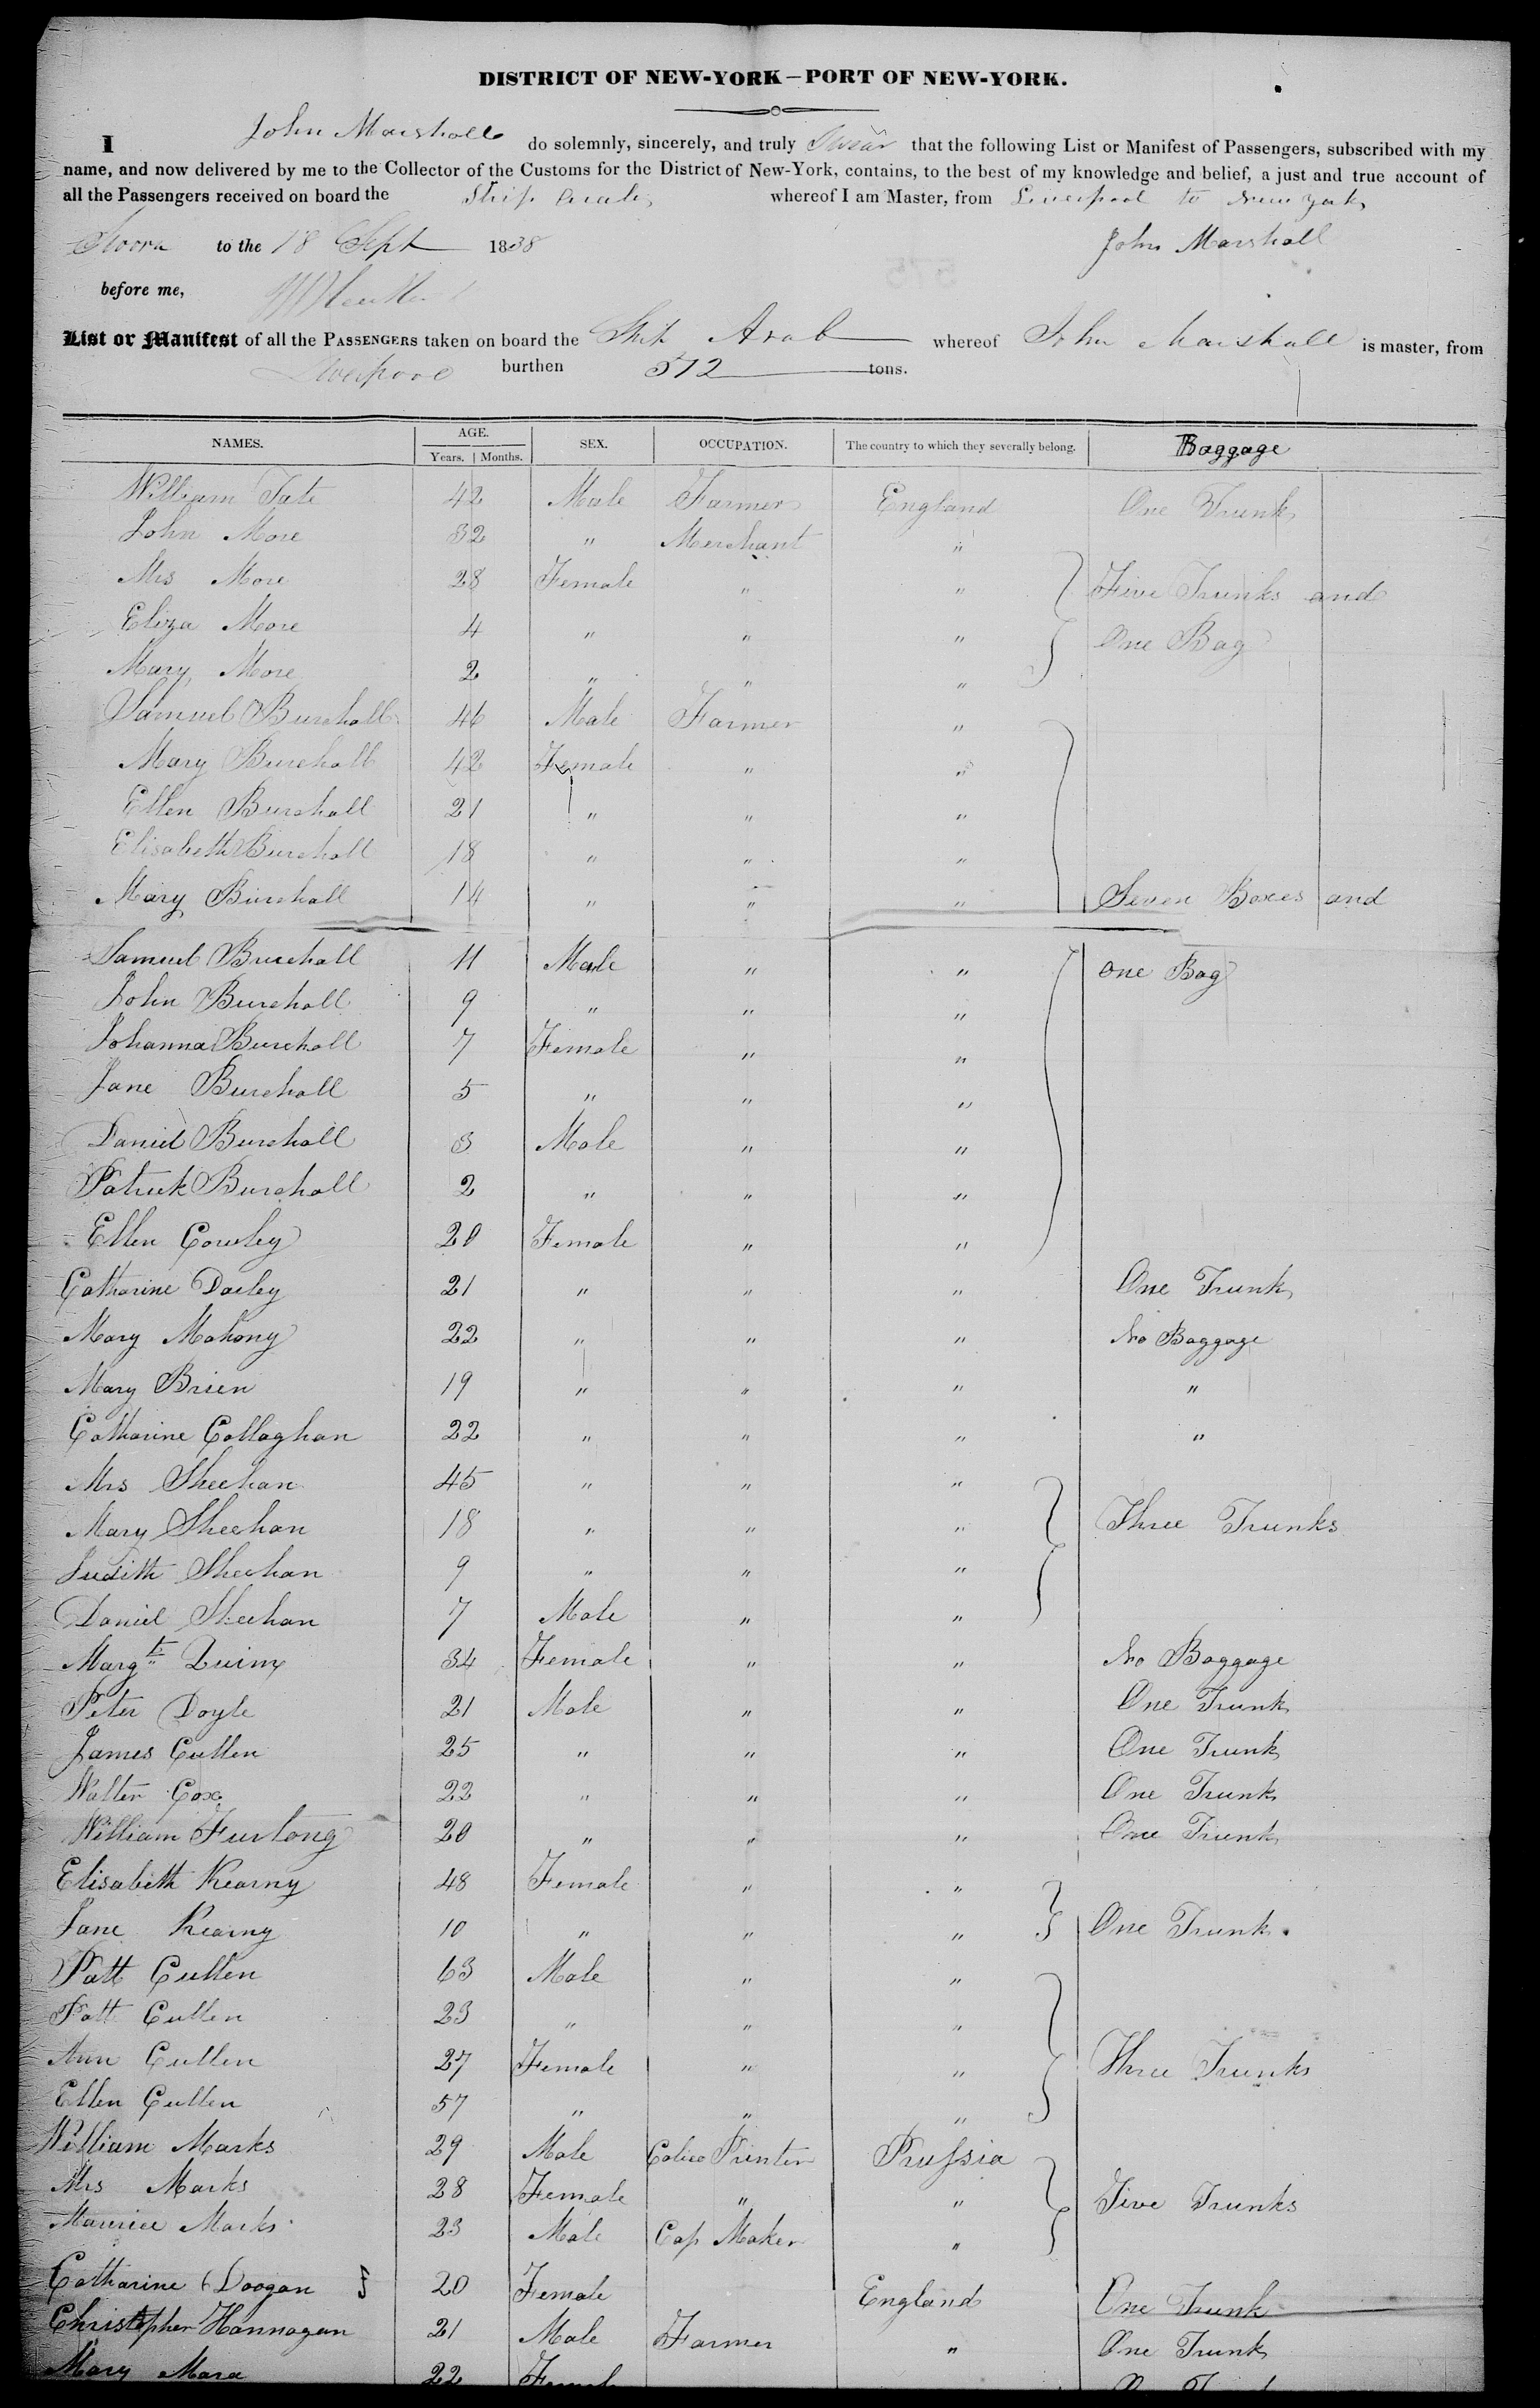 DISTRICT OF NEW-YORK—PORT OF NEW-YORK.
I John Marshall do solemnly, sincerely, and truly Swear that the following List or Manifest of Passengers, subscribed with my
name, and now delivered by me to the Collector of the Customs for the District of New-York, contains, to the best of my knowledge and belief, a just and true account of
all the Passengers received on board the Ship Arab whereof I am Master, from Liverpool to New York
Sworn to the 18 Sept 1838 John Marshall
before me,
List or Manifest of all the PASSENGERS taken on board the Ship Arab whereof John Marshall is master, from
Liverpool burthen 512 tons.
NAMES. AGE. SEX. OCCUPATION. The country to which they severally belong. Baggage
Years. Months.
William Tate 42 Male Farmer England One Trunk
John More 32 " Merchant "
Mrs More 28 Female " " Five Trunks and
Eliza More 4 " " " One Bag
Mary More 2 " " "
Samuel Burchall 46 Male Farmer "
Mary Burchall 42 Female " "
Ellen Burchall 21 " " "
Elisabeth Burchall 18 " " "
Mary Burchall 14 " " " Seven Boxes and
Samuel Burchall 11 Male " " one Bag
John Burchall 9 " " "
Johanna Burchall 7 Female " "
Jane Burchall 5 " " "
Daniel Burchall 3 Male " "
Patrick Burchall 2 " " "
Ellen Cowley 20 Female " "
Catharine Dailey 21 " " " One Trunk
Mary Mahony 22 " " " No Baggage
Mary Brien 19 " " " "
Catharine Callaghan 22 " " " "
Mrs Sheehan 45 " " "
Mary Sheehan 18 " " " Three Trunks
Judith Sheehan 9 " " "
Daniel Sheehan 7 Male " "
Margt Quinn 34 Female " " No Baggage
Peter Doyle 21 Male " " One Trunk
James Cullen 25 " " " One Trunk
Walter Cox 22 " " " One Trunk
William Furlong 20 " " " One Trunk
Elisabeth Kearny 48 Female " "
Jane Kearny 10 " " " One Trunk
Patt Cullen 63 Male " "
Patt Cullen 23 " " "
Ann Cullen 27 Female " " Three Trunks
Ellen Cullen 57 " " "
William Marks 29 Male Calico Printer Prussia
Mrs Marks 28 Female " " Five Trunks
Maurice Marks 23 Male Cap Maker "
Catharine Doogan 20 Female England One Trunk
Christopher Hannagan 21 Male Farmer " One Trunk
Mary Mara 22 Female